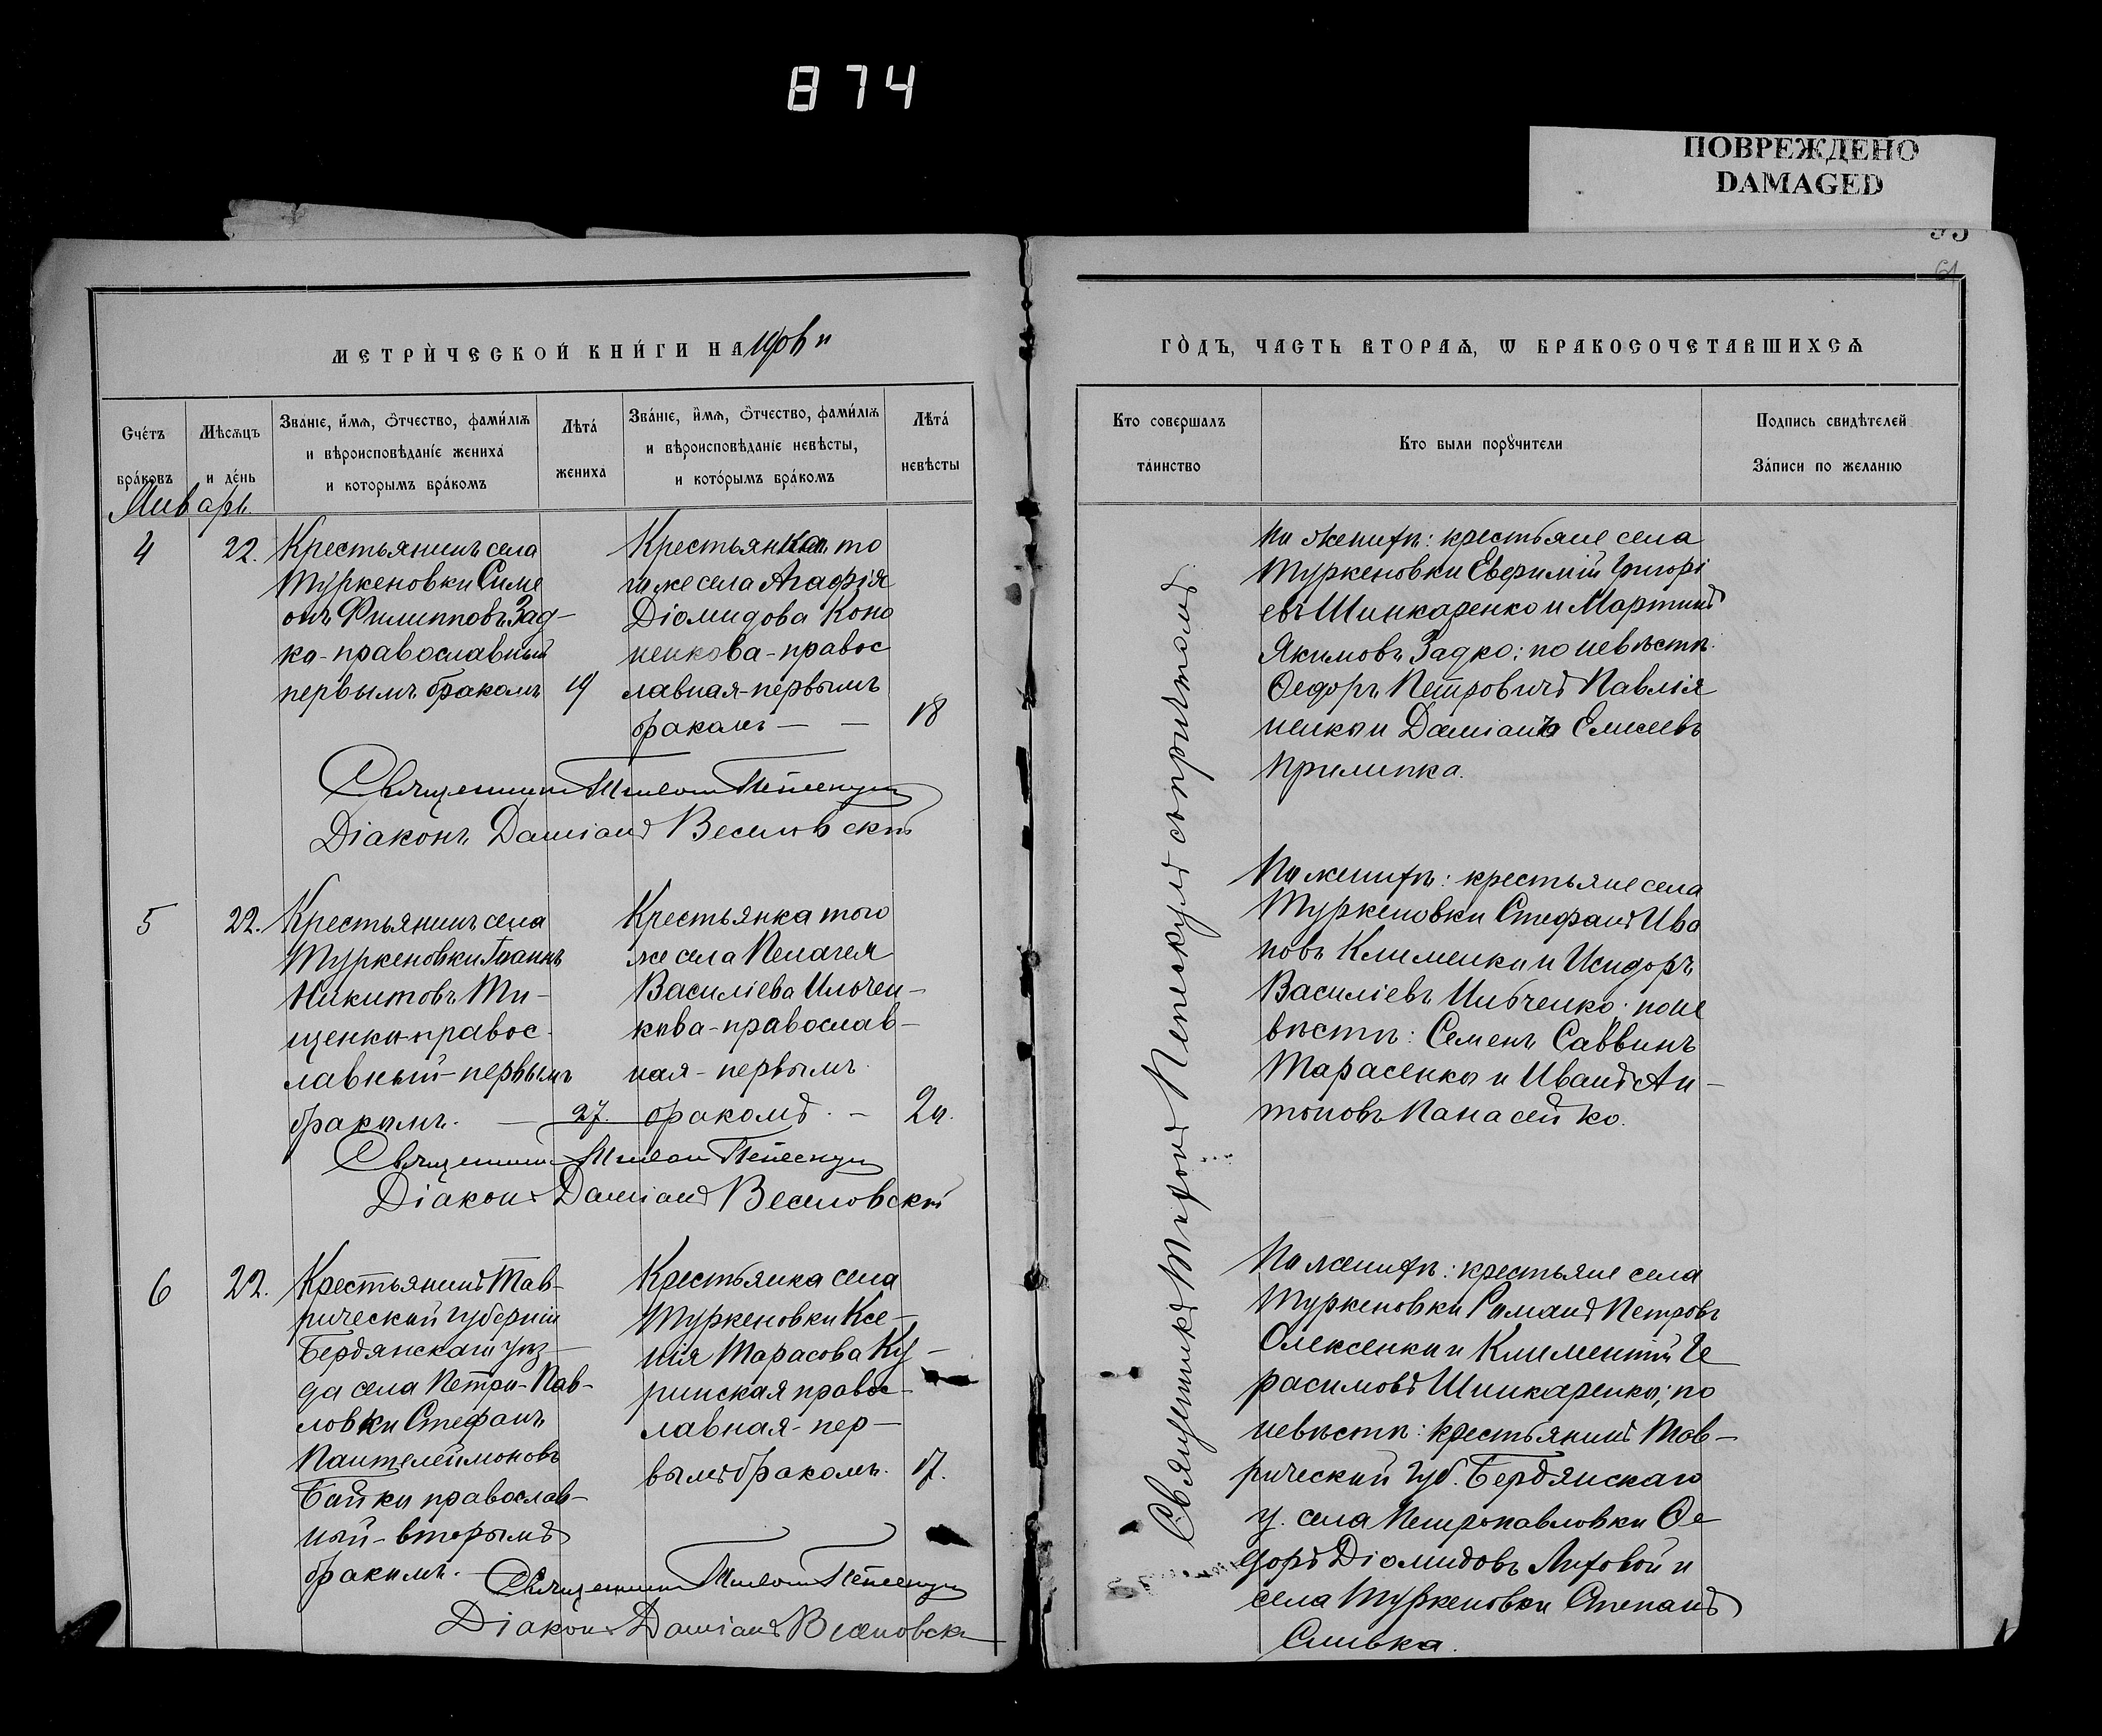 874
ПОВРЕЖДЕНО
DAMAGED
61
МЕТРИ́ЧЕСКОЙ КНИ́ГИ НА
ГО́ДЪ, ЧАСТЬ ВТОРАѦ, Ѡ БРАКОСОЧЕТАВШИХСѦ
Сче́тъ бра́ковъ
Мѣсѧцъ и де́нь
Зва́нїе, и́мѧ, о́тчество, фами́лїѧ
и вѣроисповѣда́нїе жениха̀
и которымъ бра́комъ
Лѣта́ жениха
Зва́нїе, и́мѧ, о́тчество, фами́лїѧ
и вѣроисповѣда́нїе невѣ́сты,
и кото́рымъ бра́комъ
Лѣта́ невѣсты
Кто совершалъ
та́инство
Кто были порꙋчители
Подпись свидѣтелей
За́писи по жела́нїю
Январь
4
22.
Крестьянинъ села
Туркеновки Симе
онъ Филипповъ Зад-
ко-православный
первымъ бракомъ
19
Крестьянка то
го же села Агафія
Діомидова Коно
ненкова-правос
лавная-первымъ
бракомъ —
18
По женихѣ: крестьяне села
Туркеновки Евфимій Григорі
евъ Шинкаренко и Мартинъ
Якимовъ Задко; по невѣстѣ:
Ѳедоръ Петровичъ Павлія
ненко и Даміанъ Елисеевъ
Прилипка.
Священникъ
Діаконъ Даміанъ Веселовскій
5
22.
Крестьянинъ села
Туркеновки Іоаннъ
Никитовъ Ти-
щенко-правос-
лавный-первымъ
бракомъ. —
27.
Крестьянка того
же села Пелагея
Василіева Ильчен-
кова-православ-
ная-первымъ
бракомъ. —
20.
По женихѣ: крестьяне села
Туркеновки Стефанъ Ива
новъ Клименко и Исидоръ
Василіевъ Ильченко; по не
вѣстѣ: Семенъ Саввинъ
Тарасенко и Иванъ Ан-
тоновъ Панасейко.
Священникъ
Діаконъ Даміанъ Веселовскій
6
22.
Крестьянинъ Тав-
рической губерніи
Бердянскаго уѣз-
да села Петро-Пав-
ловки Стефанъ
Пантелеймоновъ
Байко православ-
ный-вторымъ
бракомъ.
Крестьянка села
Туркеновки Ксе-
нія Тарасова Ку-
ринская правос-
лавная-пер-
вымъ бракомъ.
17.
По женихѣ: крестьяне села
Туркеновки Романъ Петровъ
Олексенко и Климентій Ге
расимовъ Шинкаренко; по
невѣстѣ: крестьянинъ Тав-
рической губ. Бердянскаго
у. села Петропавловки Ѳе
доръ Діомидовъ Лиховой и
села Туркеновки Степанъ
Сливка.
Священникъ
Діаконъ Даміанъ Веселовскі
Священникъ съ причтомъ